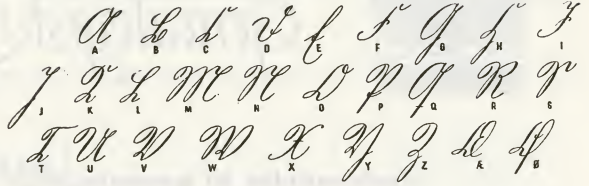 A B C D E F G H I
J K L M N O P Q R S
T U V W X Y Z Æ Ø